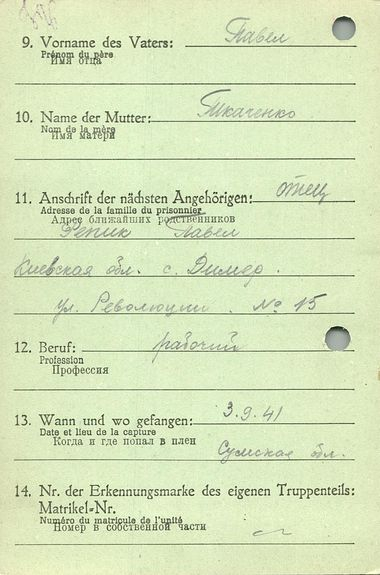 9. Vorname des Vaters: Павел
Prénom du père
Имя отца
10. Name der Mutter: Ткаченко
Nom de la mère
Имя матери
11. Anschrift der nächsten Angehörigen: отец
Adresse de la famille du prisonnier
Адрес ближайших родственников
Репик Павел
Киевская обл. с. Димер.
ул. Революции. № 15
12. Beruf: рабочий
Profession
Профессия
13. Wann und wo gefangen: 3.9.41
Date et lieu de la capture
Когда и где попал в плен
Сумская обл.
14. Nr. der Erkennungsmarke des eigenen Truppenteils:
Matrikel-Nr.
Numéro du matricule de l'unité
Номер в собственной части